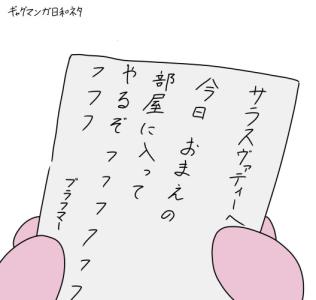 ギャグマンガ日和ネタ
サラスヴァティーへ
今日 おまえの
部屋に入って
やるぞ フフフフフ
フフフ
ブラフマー